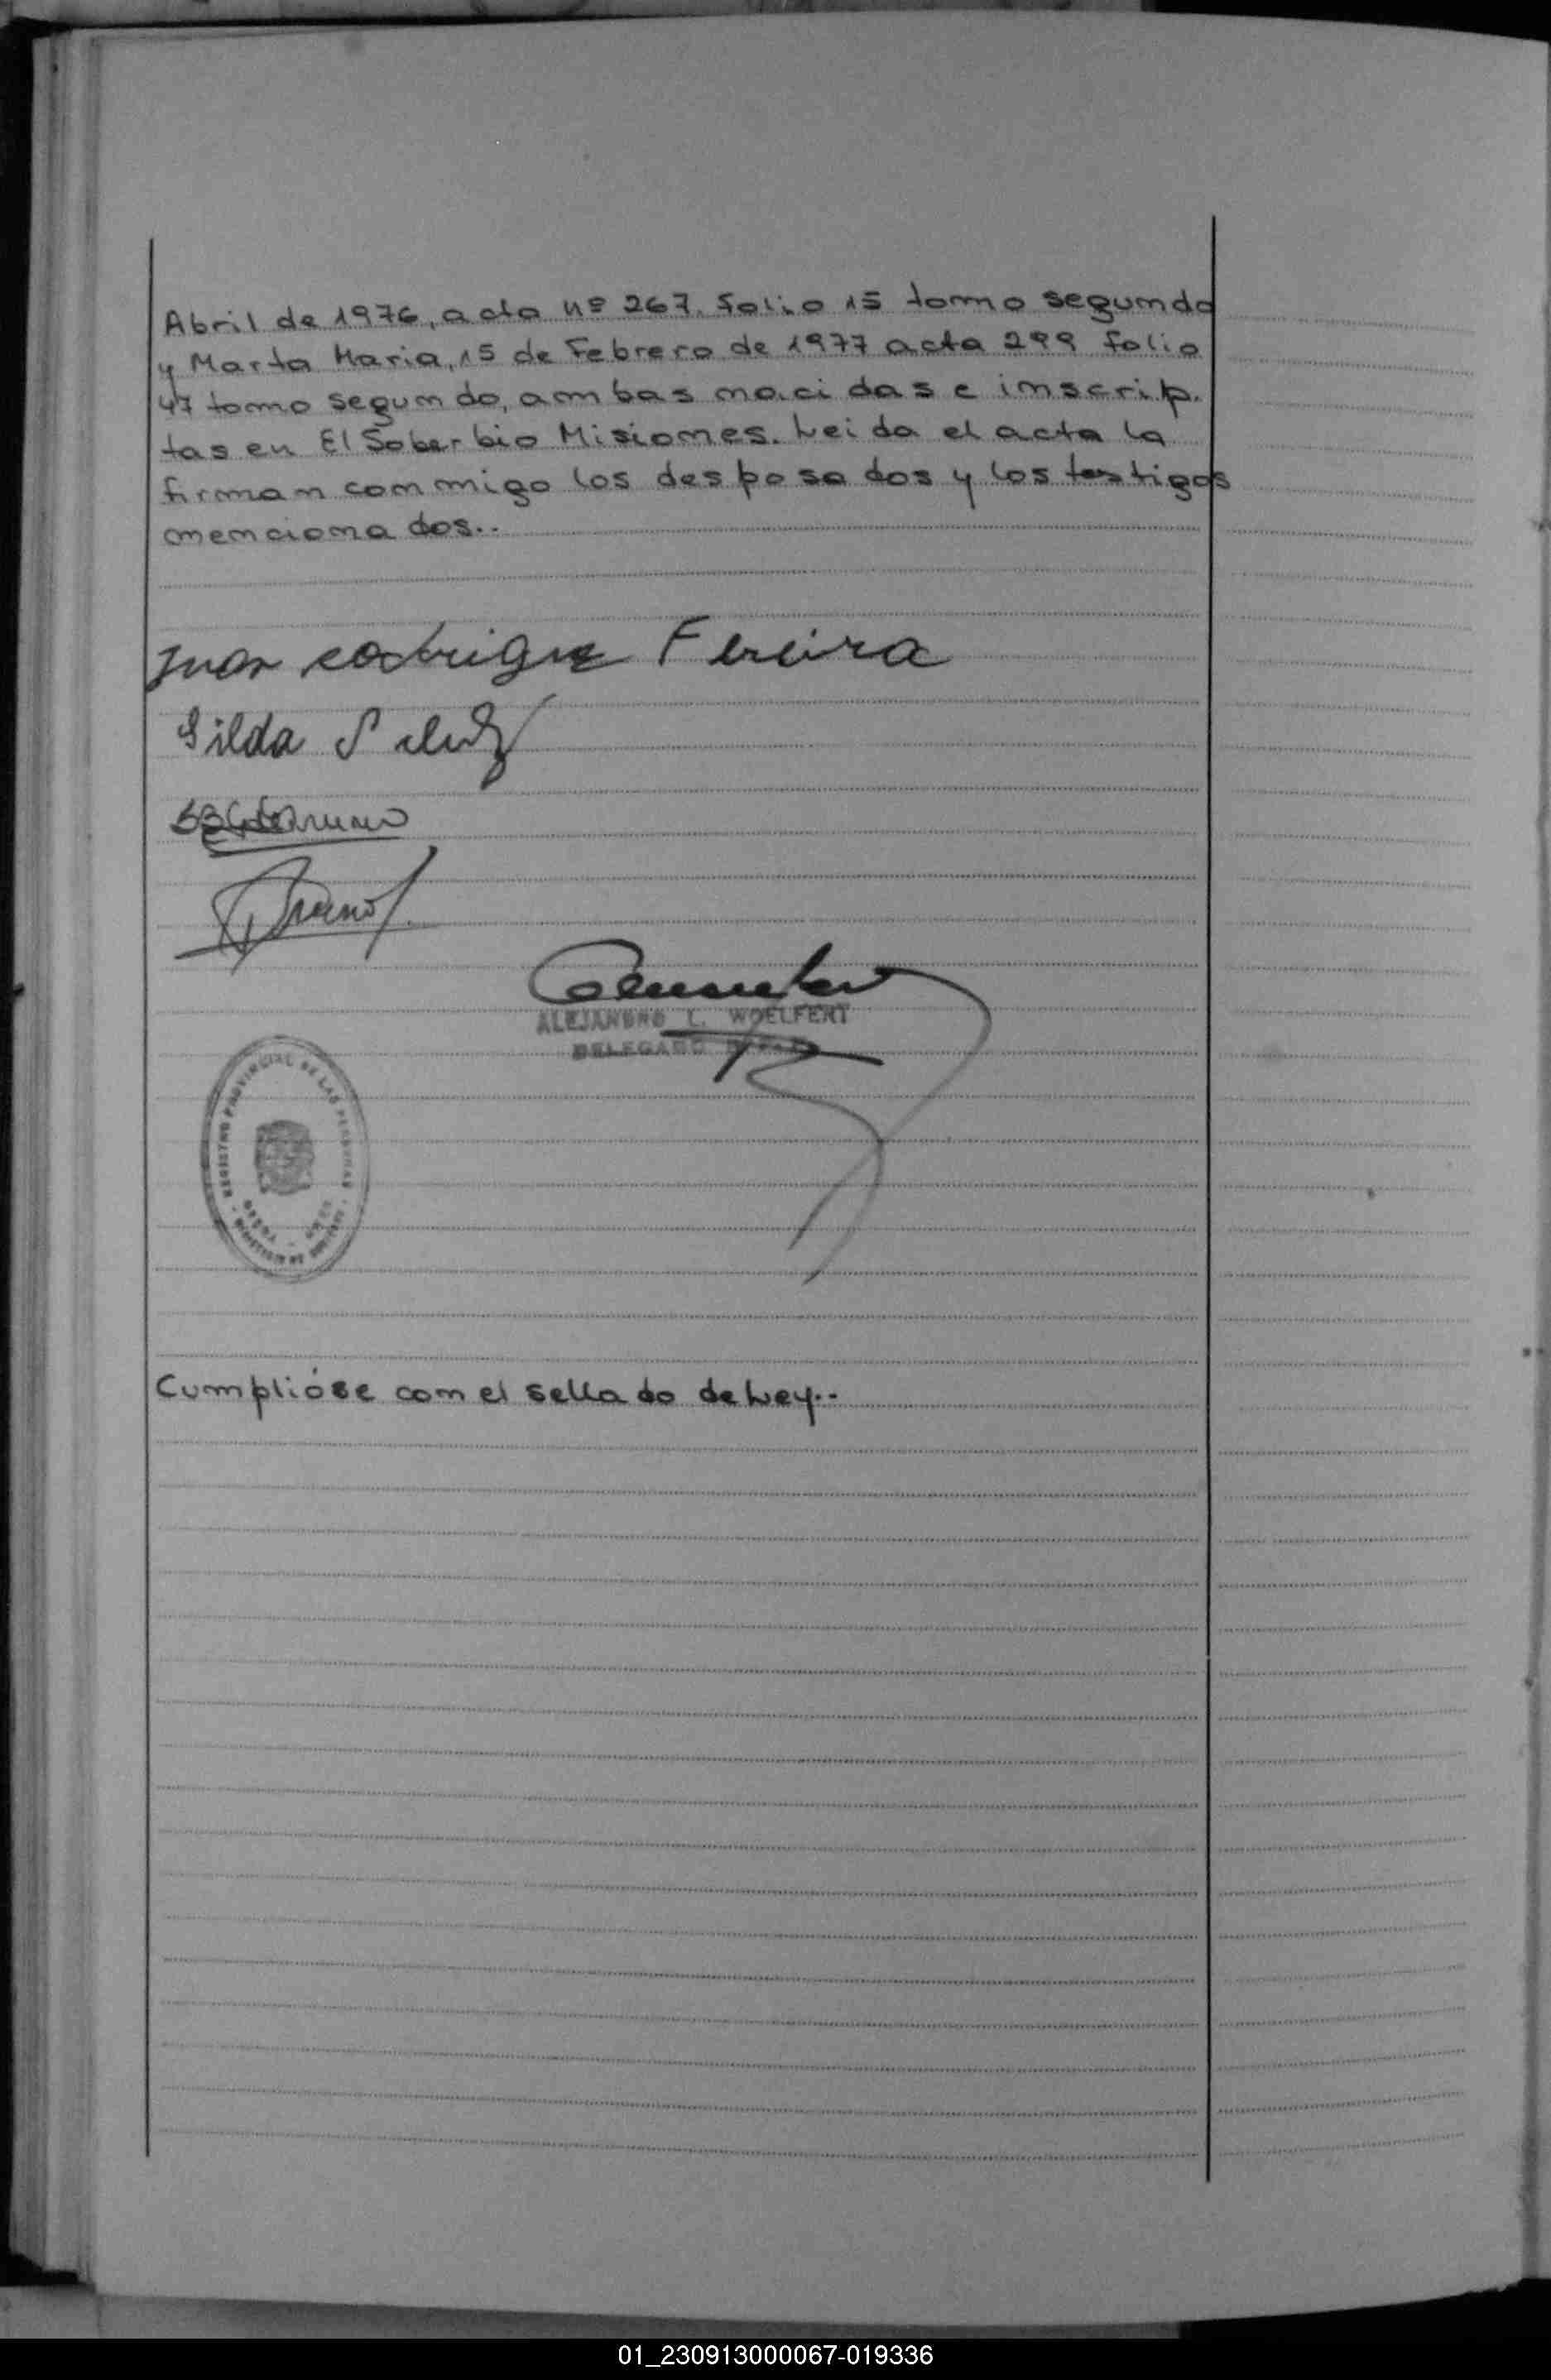 Abril de 1976, acta nº 267. folio 15 tomo segundo
y Marta Maria, 15 de Febrero de 1977 acta 299 folio
47 tomo segundo, ambas nacidas e inscrip.
tas en El Soberbio Misiones. Leida el acta la
firman conmigo los desposados y los testigos
mencionados..
Juan Fereira
Gilda S
ALEJANDRO L. WOELFERT
DELEGADO
REGISTRO PROVINCIAL DE LAS PERSONAS
Cumplióse con el sellado de Ley..
01_230913000067-019336